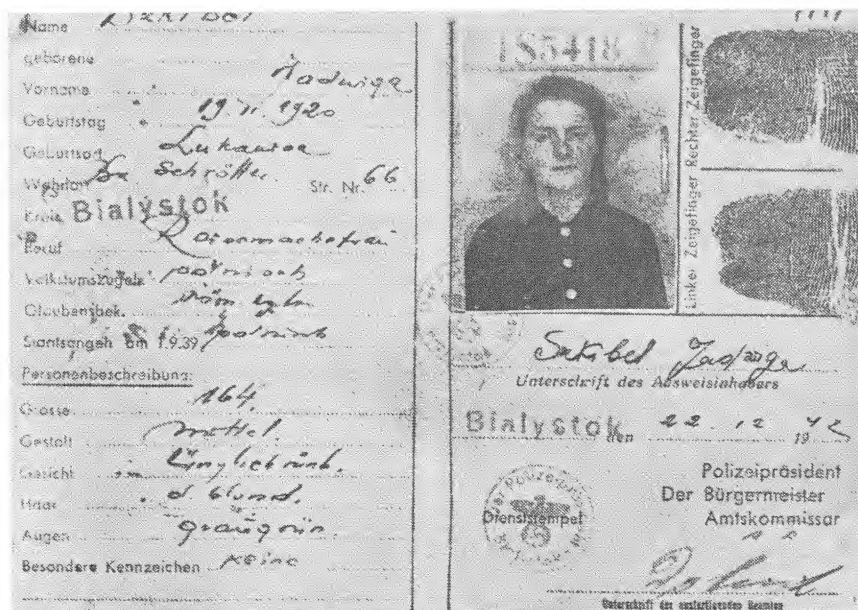 Name
geborene
Vorname Jadwiga
Geburtstag 19. 11. 1920
Geburtsort
Wohnort Schrötter Str. Nr. 66
Kreis Bialystok
Beruf
Volkstumszugeh. polnisch
Glaubensbek. röm.
Staatsangeh. am 1.9.39 polnisch
Personenbeschreibung:
Grösse 164
Gestalt mittel.
Gesicht
Haar d. blond.
Augen graugrün.
Besondere Kennzeichen keine
Rechter Zeigefinger
Linker Zeigefinger
Jadwiga
Unterschrift des Ausweisinhabers
Bialystok den 22. 12 1942
Polizeipräsident
Der Bürgermeister
Amtskommissar
Dienststempel
Unterschrift des ausfertigenden Beamten